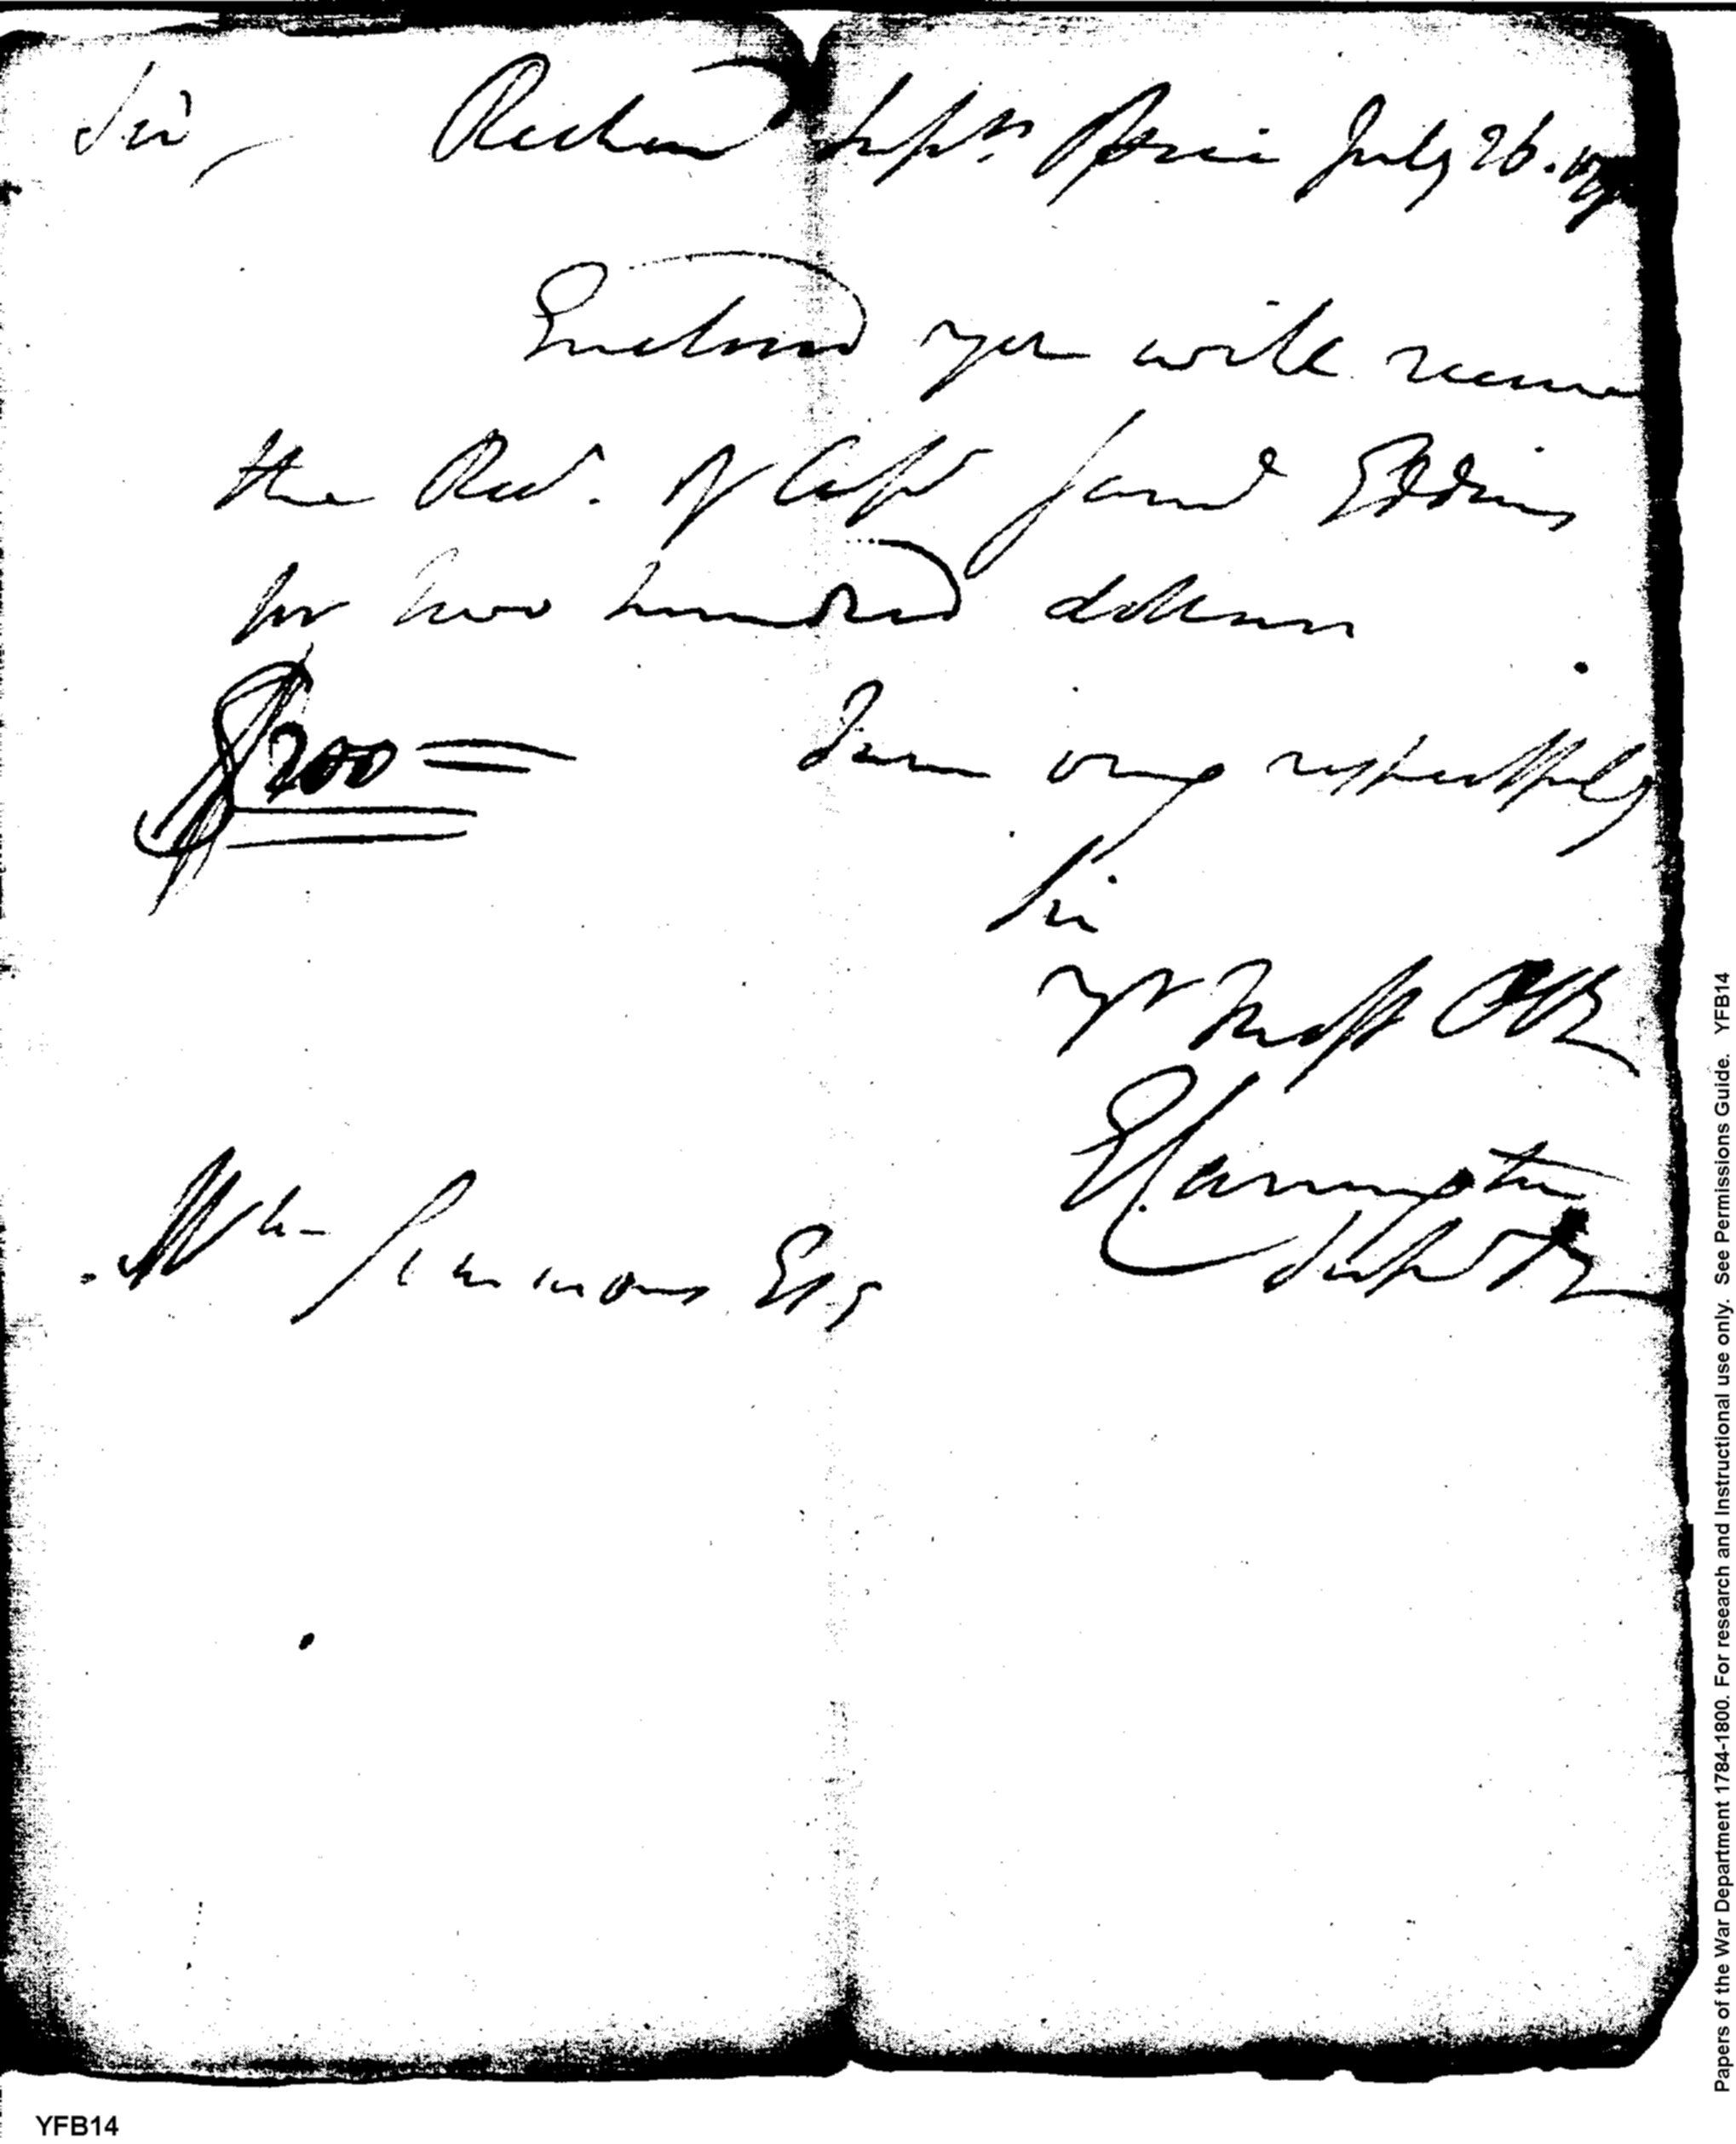 Sir, Richmond Suprs Office July 26. 179
Enclosed you will receive
the Rect. of Capt Saml Eddins
for two hundred dollars
$200 =
I am very respectfully
Sir
yr most Obt
E Carrington
Wm Simmons Esq
YFB14
Papers of the War Department 1784-1800. For research and Instructional use only. See Permissions Guide. YFB14